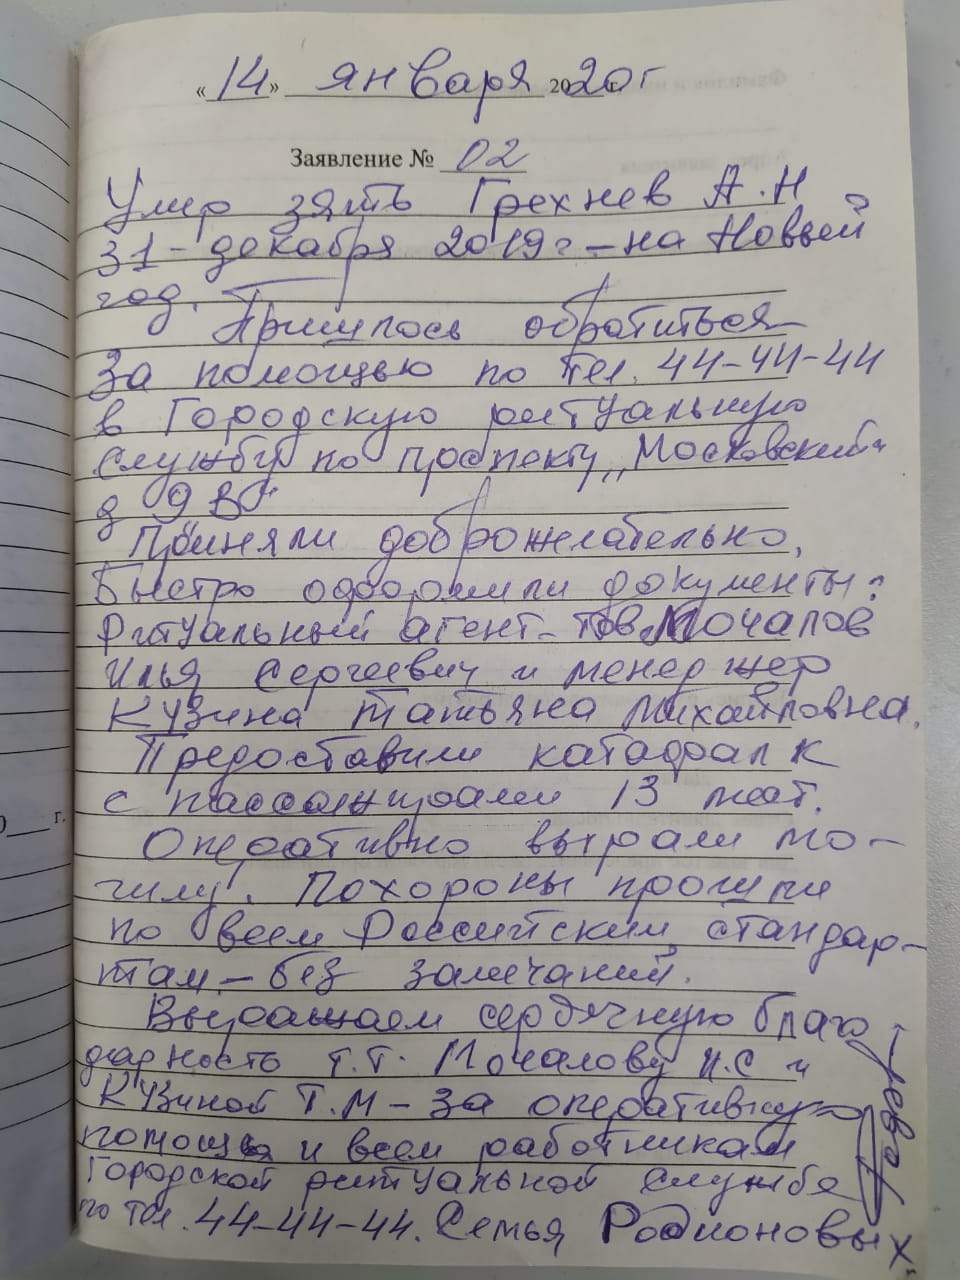 «14» января 2020г
Заявление № 02
Умер зять Грехнев А.Н
31-декабря 2019г-на Новый
год.
Пришлось обратиться
за помощью по тел. 44-44-44
в Городскую ритуальную
службу по проспекту „Московский"
д 9 В"
Приняли доброжелательно,
Быстро оформили документы:
Ритуальный агент- тов. Мочалов
Илья Сергеевич и менеджер
Кузина Татьяна Михайловна.
Предоставили катафалк
с пассажирами 13 мест.
Оперативно вырали мо-
гилу. Похороны прошли
по всем Российским стандар-
там - без замечаний.
Выражаем сердечную благо-
дарность т.т. Мочалову И.С и
Кузиной Т.М - за оперативную
помощь и всем работникам
Городской ритуальной службе
по тел. 44-44-44. Семья Родионовых
0___ г.